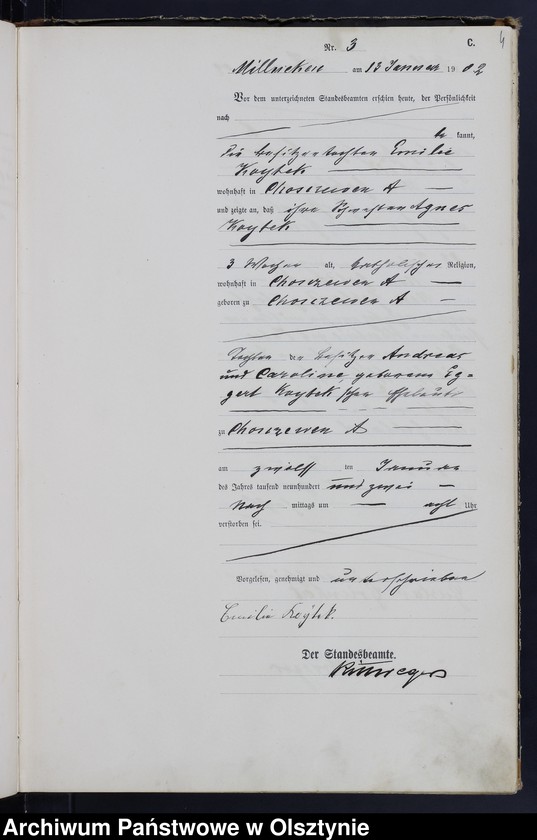 4
Nr. 3 C.
am 13 Januar 1902
Vor dem unterzeichneten Standesbeamten erschien heute, der Persönlichkeit
nach
be kannt,
die Besitzertochter Emilie
wohnhaft in Choszewen A
und zeigte an, daß ihre Schwester Agnes
3 Wochen alt, katholischer Religion,
wohnhaft in Choszewen A
geboren zu Choszewen A
Tochter der Besitzer Andreas
und Caroline, geborene Eg-
gert schen Eheleute
zu Choszewen A
am zwölf ten Januar
des Jahres tausend neunhundert und zwei
Nach mittags um acht Uhr
verstorben sei.
Vorgelesen, genehmigt und unterschrieben
Emilie
Der Standesbeamte.
Archiwum Państwowe w Olsztynie